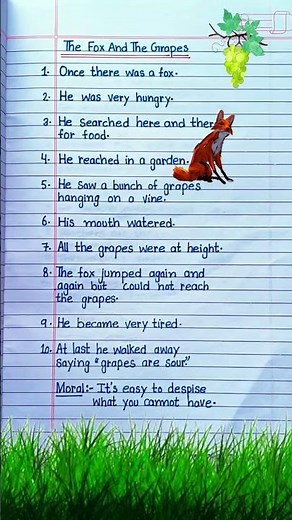 The Fox And The Grapes
1. Once there was a fox.
2. He was very hungry.
3. He searched here and there
for food.
4. He reached in a garden.
5. He saw a bunch of grapes
hanging on a vine.
6. His mouth watered.
7. All the grapes were at height.
8. The fox jumped again and
again but could not reach
the grapes.
9. He became very tired.
10. At last he walked away
saying "grapes are sour."
Moral:- It's easy to despise
what you cannot have.